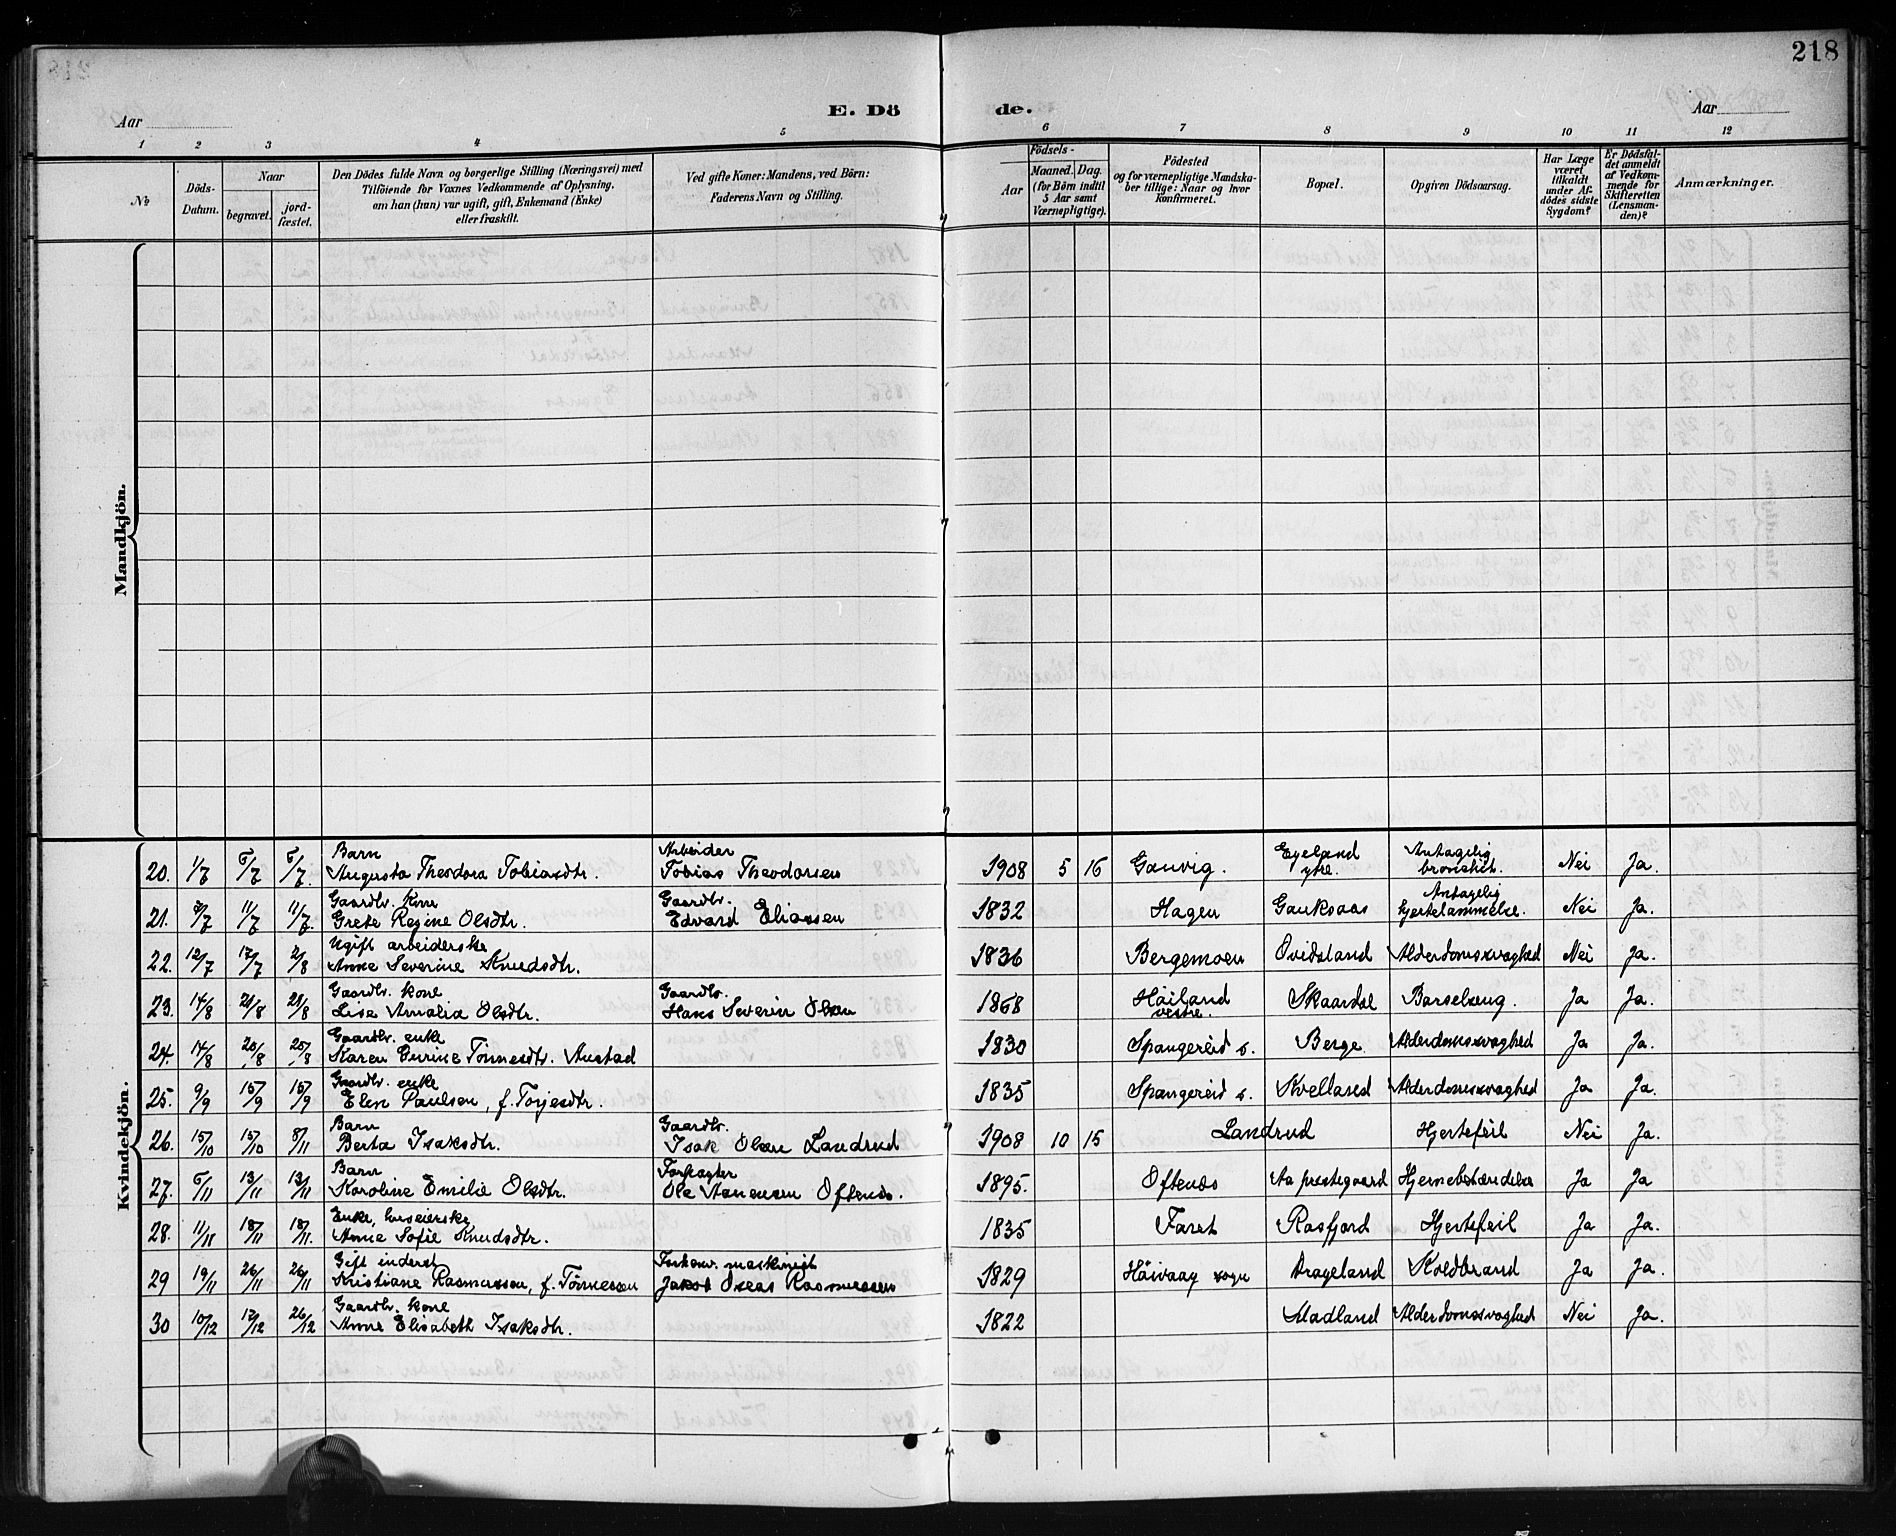 218
E. Dö de.
Aar
Aar
1 2 3 4 5 6 7 8 9 10 11 12
No
Döds-
Datum.
Naar
begravet.
jord-
fæstet.
Den Dödes fulde Navn og borgerlige Stilling (Næringsvei) med
Tilföiende for Voxnes Vedkommende af Oplysning,
om han (hun) var ugift, gift, Enkemand (Enke)
eller fraskilt.
Ved gifte Koner: Mandens, ved Börn:
Faderens Navn og Stilling.
Födsels-
Aar
Maaned.
Dag.
(for Börn indtil
5 Aar samt
Værnepligtige).
Födested
og for værnepligtige Mandska-
ber tillige: Naar og hvor
konfirmeret.
Bopæl.
Opgiven Dödsaarsag.
Har Læge
været
tilkaldt
under Af-
dödes sidste
Sygdom?
Er Dödsfal-
det anmeldt
af Vedkom-
mende for
Skifteretten
(Lensman-
den)?
Anmærkninger.
Mandkjön.
Kvindekjön.
20. 1/7 5/7 5/7. Barn Augusta Theodora Tobiasdtr. Arbeider Tobias Theodorsen 1908 5 16 Gauvig. Eyeland ytre. Antagelig bronchit. Nei Ja.
21. 7/7 11/7 11/7. Gaardbr. kone Grete Regine Olsdtr. Gaardbr. Edvard Eliassen 1832 Hagen Gauksaas Antagelig hjertelammelse. Nei Ja.
22. 12/7 17/7 2/8 Ugift arbeiderske Anne Severine Knudsdtr. 1836 Bergemoen Ovidsland Alderdomssvaghed Nei Ja.
23. 14/8 21/8 21/8 Gaardbr. kone Lise Amalia Olsdtr. Gaardbr. Hans Severin Olsen 1868 Höiland vestre. Skaardal Barselseng. Ja Ja.
24. 14/8 20/8 25/8 Gaardbr. enke Karen Gurine Tönnesdtr. Austad 1830 Spangereid s. Berge Alderdomssvaghed Ja Ja.
25. 9/9 15/9 15/9 Gaardbr. enke Elen Paulsen, f. Torjesdtr. 1835 Spangereid s. Kvelland Alderdomssvaghed Ja Ja.
26. 15/10 15/10 8/11 Barn Berta Isaksdtr. Gaardbr. Isak Olsen Landrud 1908 10 15 Landrud Hjertefeil Nei Ja.
27. 5/11 13/11 13/11 Barn Karoline Emilie Olsdtr. Forpagter Ole Asensen Oftenes. 1895. Oftenes Aa prestegaard Hjernebetændelse Ja Ja
28. 11/11 18/11 18/11. Enke, huseierske Anne Sofie Knudsdtr. 1835 Faret Rosfjord Hjertefeil Ja Ja.
29 19/11 26/11 26/11 Gift inderst Kristiane Rasmussen, f. Tönnesen Forhenv. maskinist Jakob Oseas Rasmussen 1829 Höivaag sogn Drageland Koldbrand Ja Ja.
30 10/12 17/12 26/12 Gaardbr. kone Anne Elisabeth Isaksdtr. 1822 Stadland Alderdomssvaghed Nei Ja.